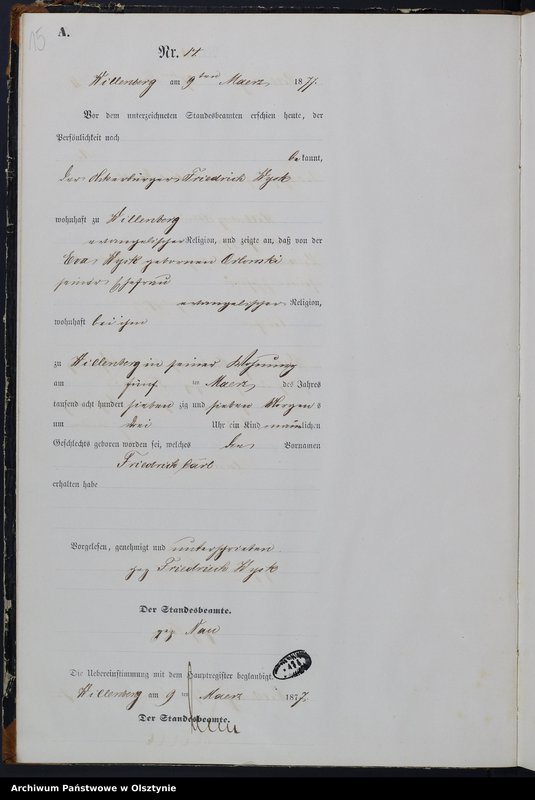 15
A.
Nr. 14
Willenberg am 9ten Maerz 1877.
Vor dem unterzeichneten Standesbeamten erschien heute, der
Persönlichkeit nach
bekannt,
der Ackerbürger Friedrich Wysk
wohnhaft zu Willenberg
evangelischer Religion, und zeigte an, daß von der
Eva Wysk geborenen Orlowski
seiner Ehefrau
evangelischer Religion,
wohnhaft bei ihm
zu Willenberg in seiner Wohnung
am fünf ten Maerz des Jahres
tausend acht hundert sieben zig und sieben Morgens
um drei Uhr ein Kind männlichen
Geschlechts geboren worden sei, welches den Vornamen
Friedrich Carl
erhalten habe
Vorgelesen, genehmigt und unterschrieben
gez Friedrich Wysk
Der Standesbeamte.
gez Nau
Die Uebereinstimmung mit dem Hauptregister beglaubigt.
Willenberg am 9 ten Maerz 1877.
Der Standesbeamte.
Archiwum Państwowe w Olsztynie